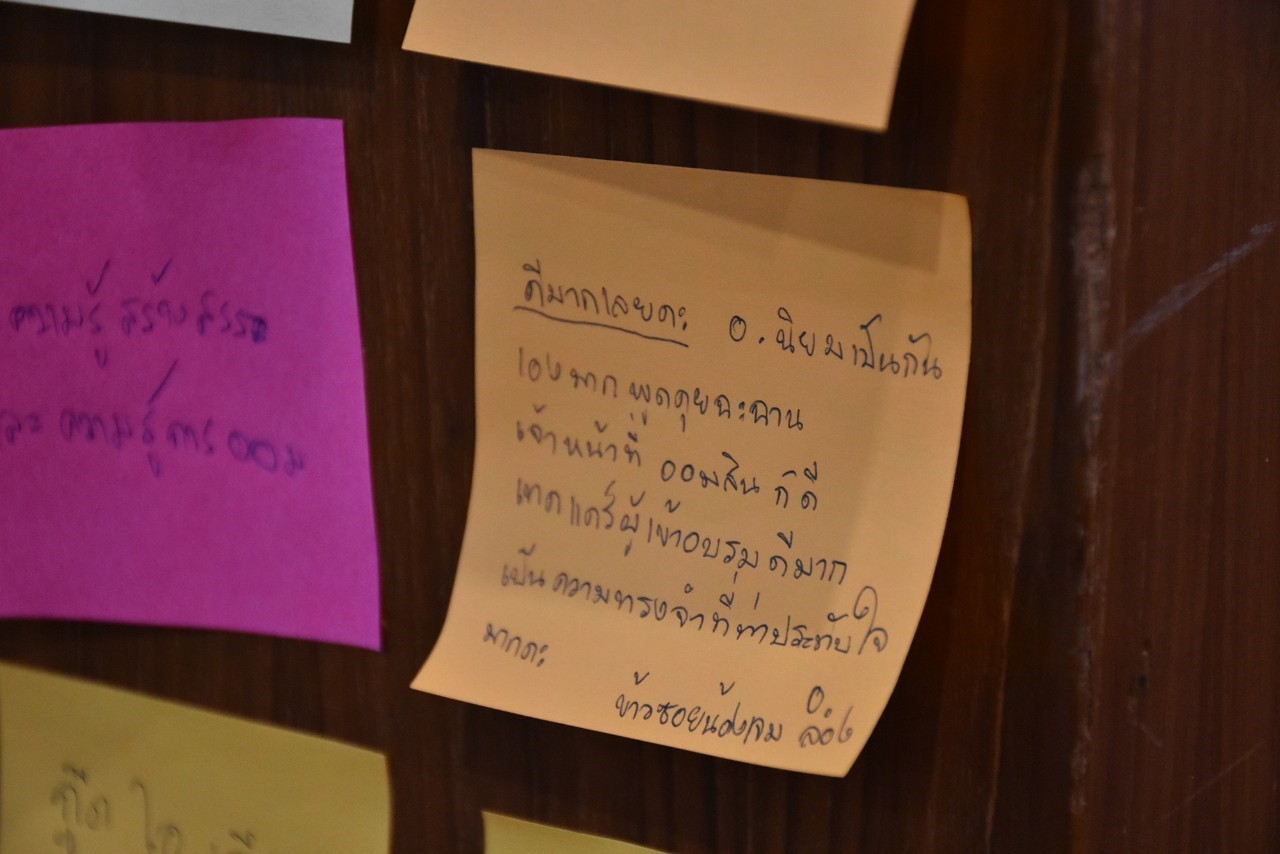 ความรู้ สร้างสรรค
และ ความรู้การออม
ดีมากเลยคะ อ.นิยมเป็นกัน
เองมาก พูดคุยฉะฉาน
เจ้าหน้าที่ ออมสิน ก็ดี
เทคแคร์ผู้เข้าอบรม ดีมาก
เป็นความทรงจำที่น่าประทับใจ
มากคะ
ข้าวซอยน้องเจม อ.ลอง